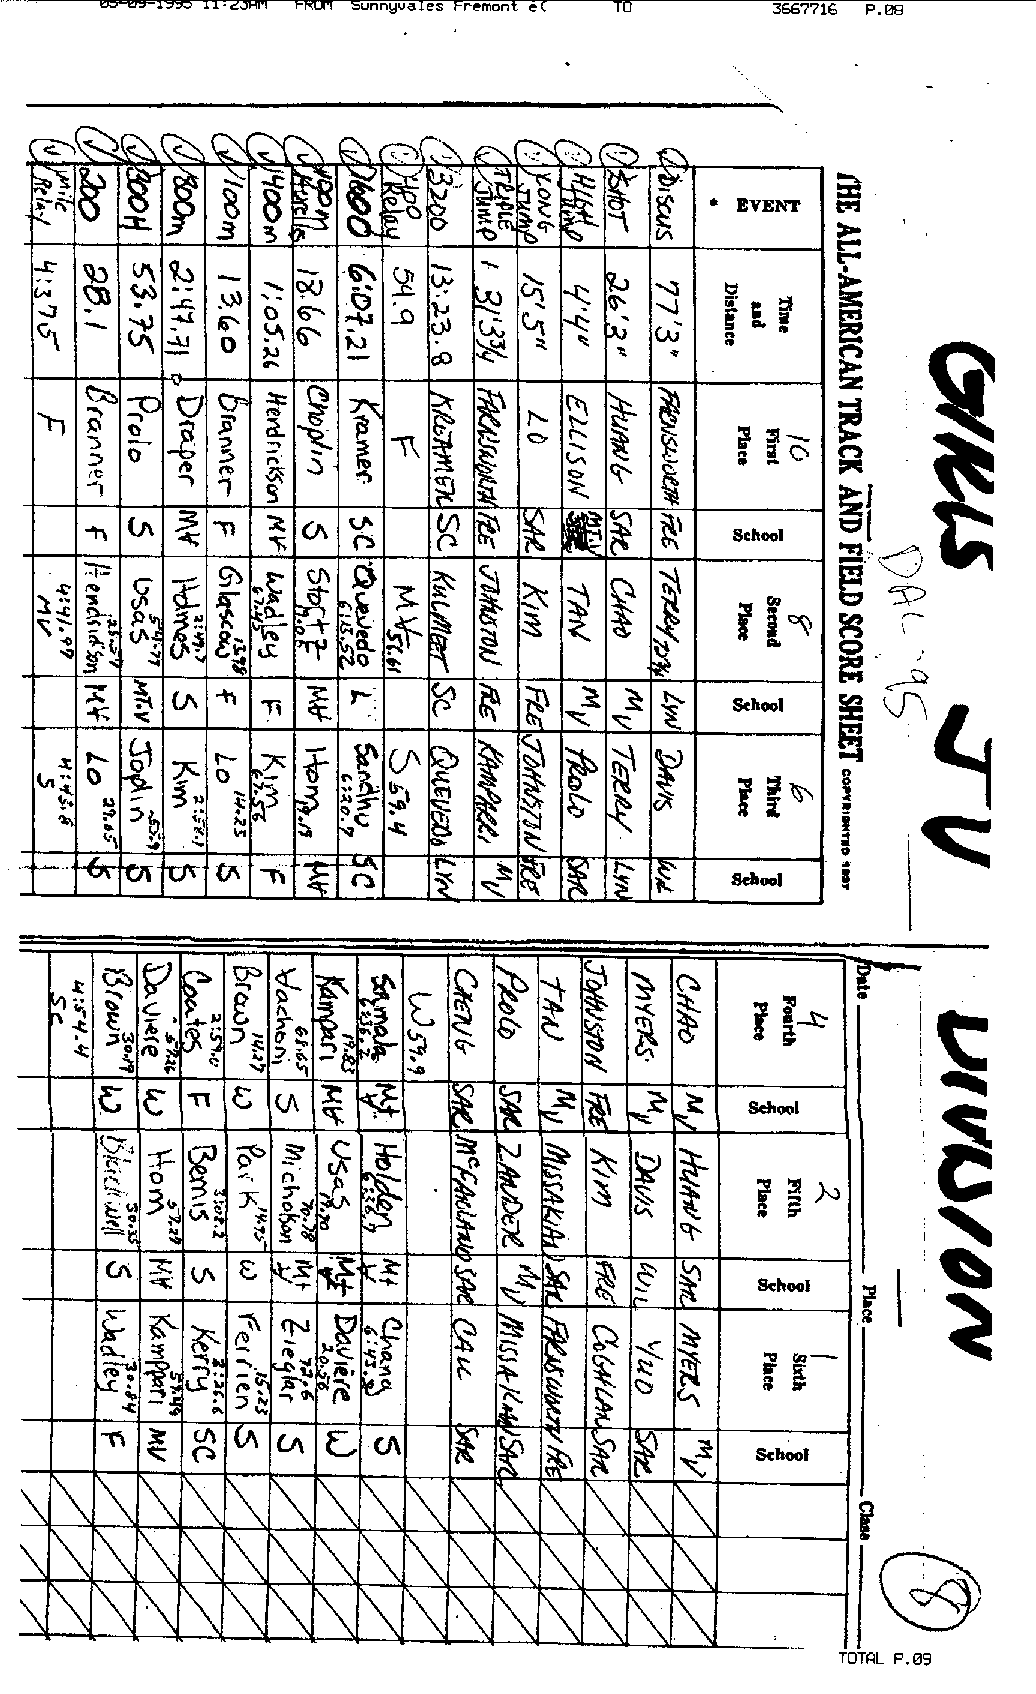 05-09-1995 11:23AM FROM Sunnyvales Fremont TO 3667716 P.08
GIRLS JV DIVISION
DAL -95
THE ALL-AMERICAN TRACK AND FIELD SCORE SHEET COPYRIGHTED
Date Place Class
8
10 8 6 4 2 1
• EVENT Time and Distance First Place School Second Place School Third Place School Fourth Place School Fifth Place School Sixth Place School
DISCUS 77'3" FARNSWORTH FRE TERRY LYN DAVIS WIL CHAO MV HUANG SAR MYERS MV
SHOT 26'3" HUANG SAR CHAO MV TERRY LYN MYERS MV DAVIS WIL YUO SAR
HIGH JUMP 4'4" ELLISON MTN TAN MV PROLO SAR JOHNSTON FRE KIM FRE COGHLAN SAR
LONG JUMP 15'5" LO SAR KIM FRE JOHNSTON FRE TAN MV MISSAKIAN SAR FARNSWORTH FRE
TRIPLE JUMP 31'3 3/4 FARNSWORTH FRE JOHNSTON FRE KAMPARRI MV PROLO SAR ZANDER MV MISSAKIAN SAR
3200 13:23.8 KREAMER SC KULMEET SC QUEVEDO LYN CHENG SAR McFARLAND SAR CAU SAR
400 Relay 54.9 F MV 56.61 S 59.4 W 59.9
1600 6:07.21 Kramer SC Quevedo 6:13.52 L Sandhu 6:20.9 SC Mt.V Holden Mt V Chang S
100m Hurdles 18.66 Choplin S Stortz MV Hom MV Kampari 19.83 MV Usas 19.90 Mt V Daviere 20.56 W
400m 1:05.26 Hendrickson MV Wadley 67.45 F Kim 67.56 F Vachon 68.65 S Micholson 70.78 Mt V Zieglar 72.6 S
100m 13.60 Branner F Glascow 13.98 F LO 14.23 S Brown 14.27 W Park 14.95 W Ferrien 15.23 S
800m 2:47.71 Draper MV Holmes 2:49.7 S Kim S Coates F Bemis 3:02.2 S Kerry SC
300H 53.75 Prolo S Usas 54.77 MT.V Joplin S Daviere 57.26 W Hom 57.29 MV Kampari MV
200 28.1 Branner F Hendrickson MV LO 29.65 S Brown 30.19 W S Wadley 30.84 F
Mile Relay 4:37.5 F 4:41.99 MV 4:43.8 S 4:54.4 SC
TOTAL P.09